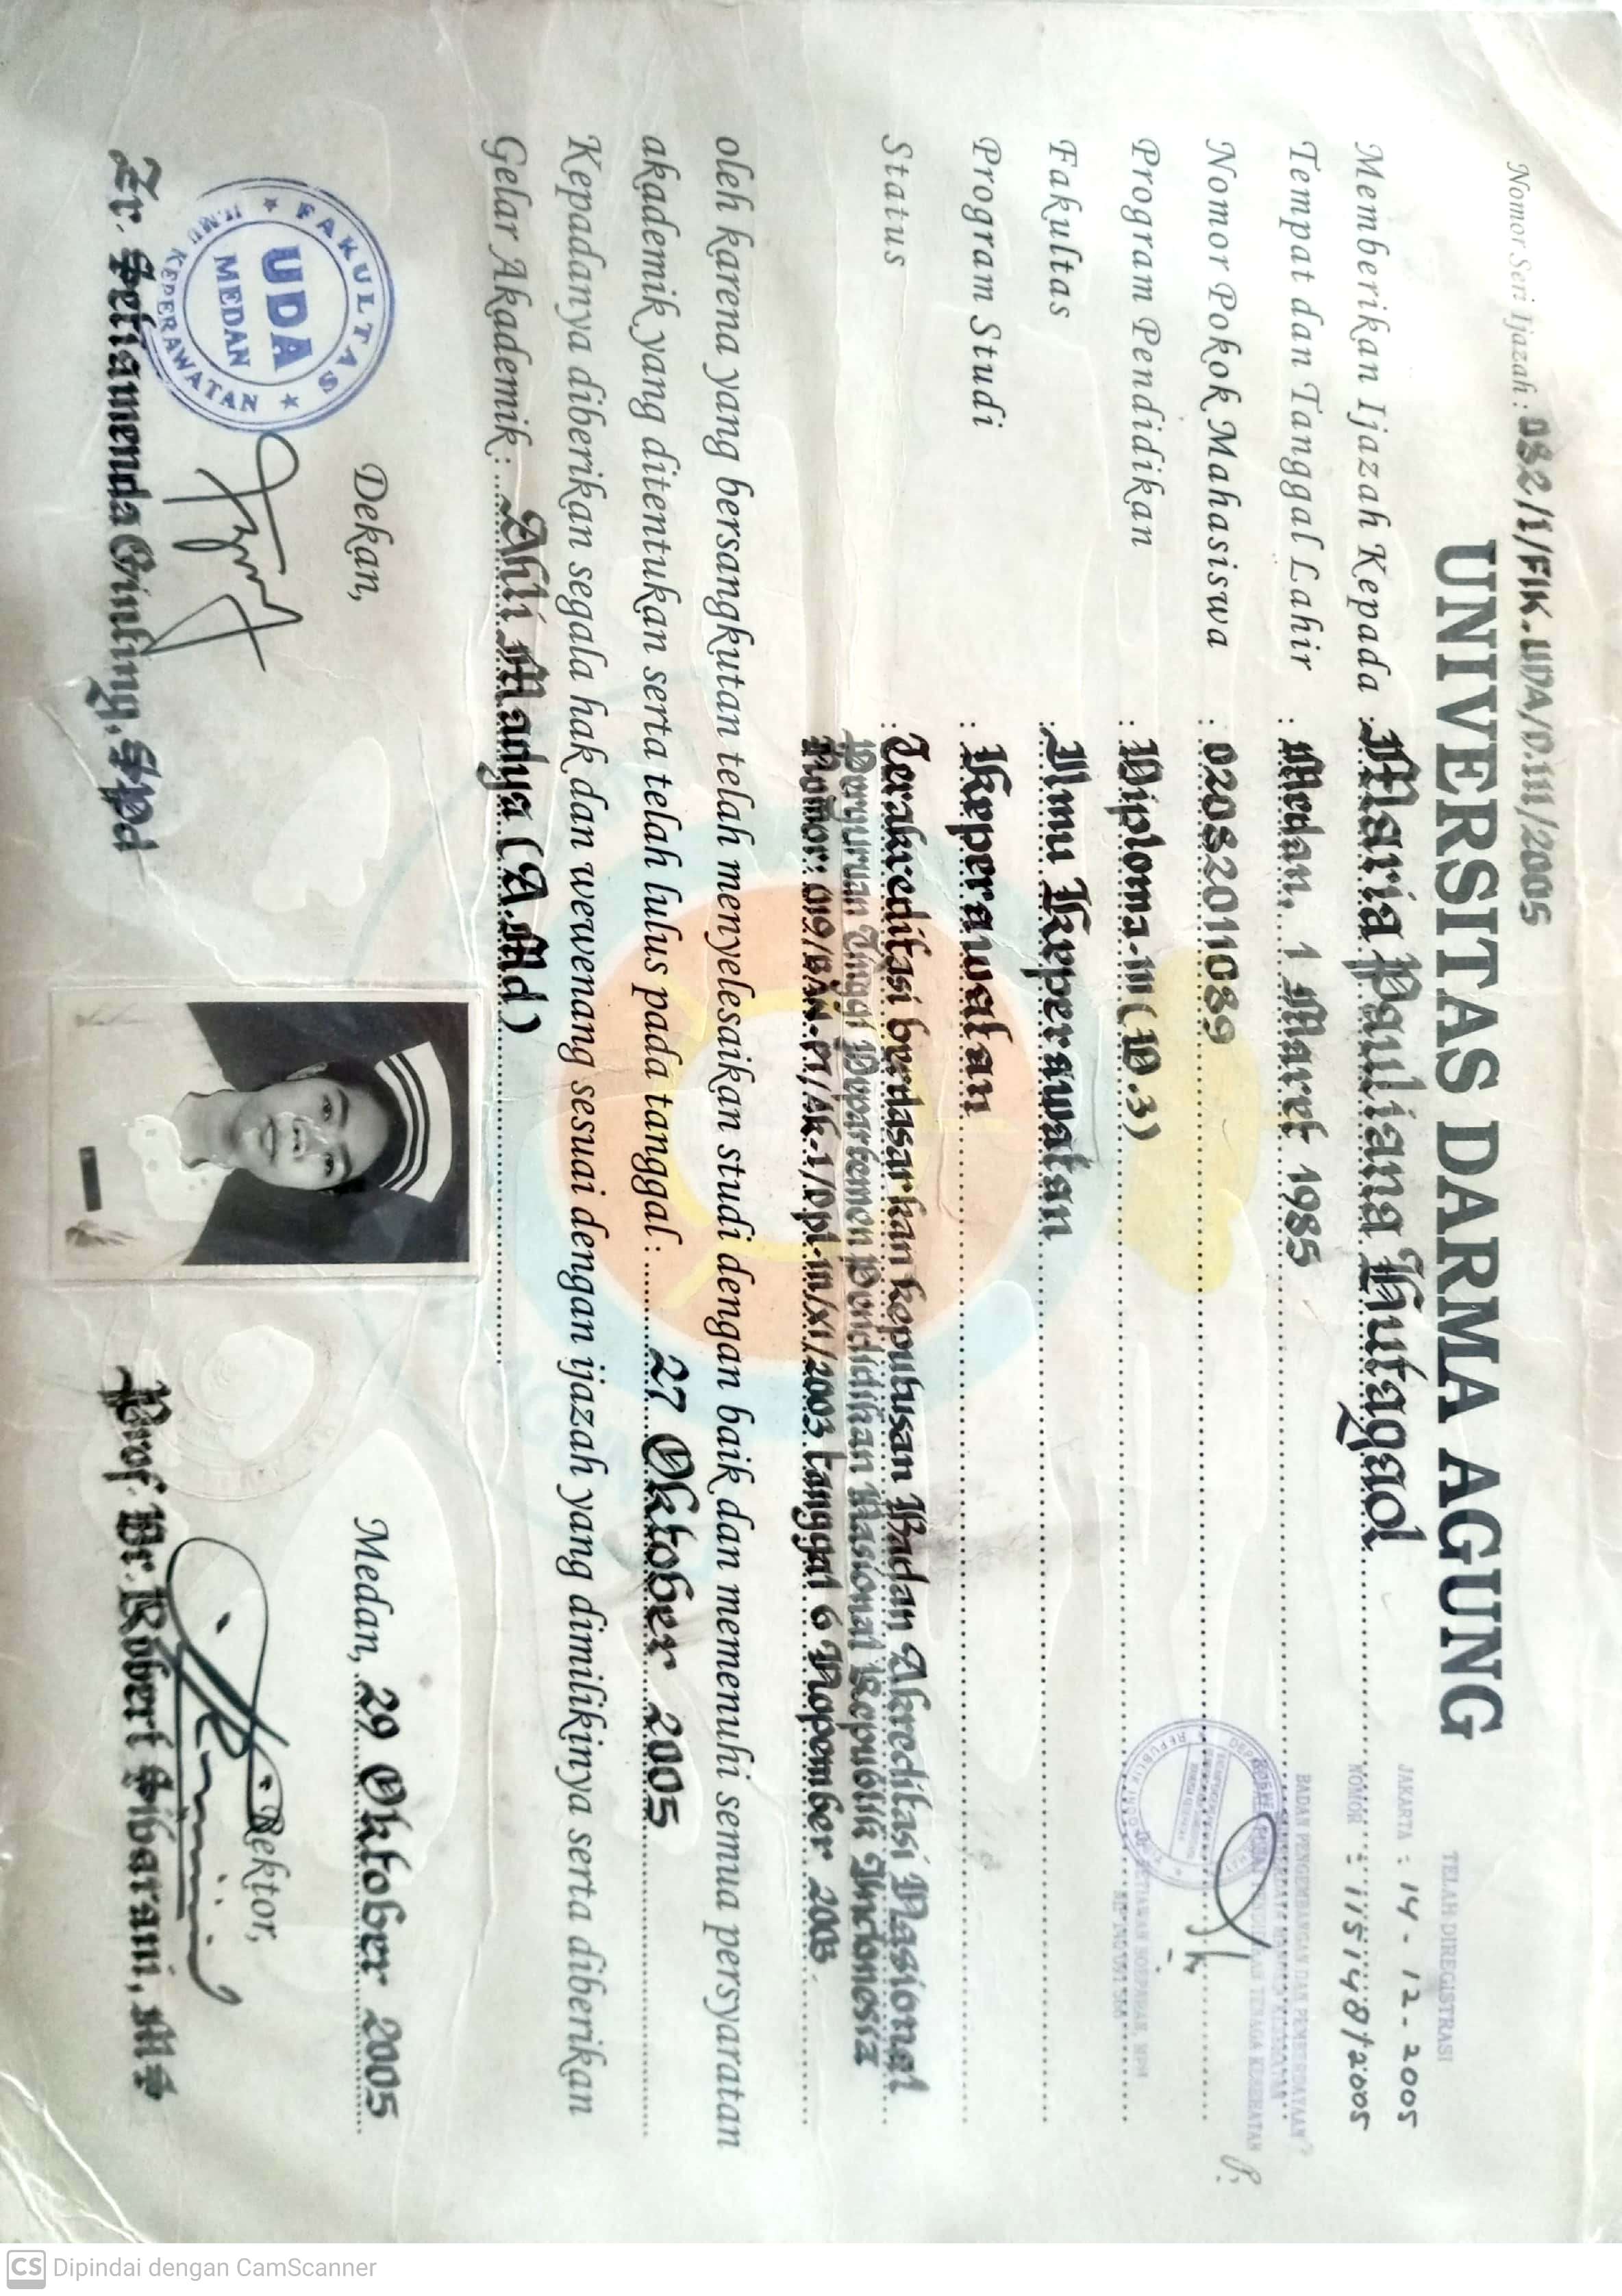 Nomor Seri Ijazah : 082/1/FIK-UDA/D.III/2005
UNIVERSITAS DARMA AGUNG
TELAH DIREGISTRASI
JAKARTA : 14 - 12 - 2005
NOMOR : 115148/2005
BADAN PENGEMBANGAN DAN PEMBERDAYAAN
Memberikan Ijazah Kepada : Maria Pauliana Hutagaol
Tempat dan Tanggal Lahir : Medan, 1 Maret 1985
Nomor Pokok Mahasiswa : 02082011089
Program Pendidikan : Diploma-III (D.3)
Fakultas : Ilmu Keperawatan
Program Studi : Keperawatan
Status : Terakreditasi berdasarkan keputusan Badan Akreditasi Nasional
Perguruan Tinggi Departemen Pendidikan Nasional Republik Indonesia
Nomor: 019/BAN-PT/Ak-1/Dpl-III/XI/2003 tanggal 6 Nopember 2003
oleh karena yang bersangkutan telah menyelesaikan studi dengan baik dan memenuhi semua persyaratan
akademik yang ditentukan serta telah lulus pada tanggal : 27 Oktober 2005
Kepadanya diberikan segala hak dan wewenang sesuai dengan ijazah yang dimilikinya serta diberikan
Gelar Akademik : Ahli Madya (A.Md)
Medan, 29 Oktober 2005
Dekan,
Rektor,
FAKULTAS
ILMU KEPERAWATAN
UDA
MEDAN
Zr. Setiamenda Ginting, SPd
Prof. Dr. Robert Sibarani, MS
CS Dipindai dengan CamScanner